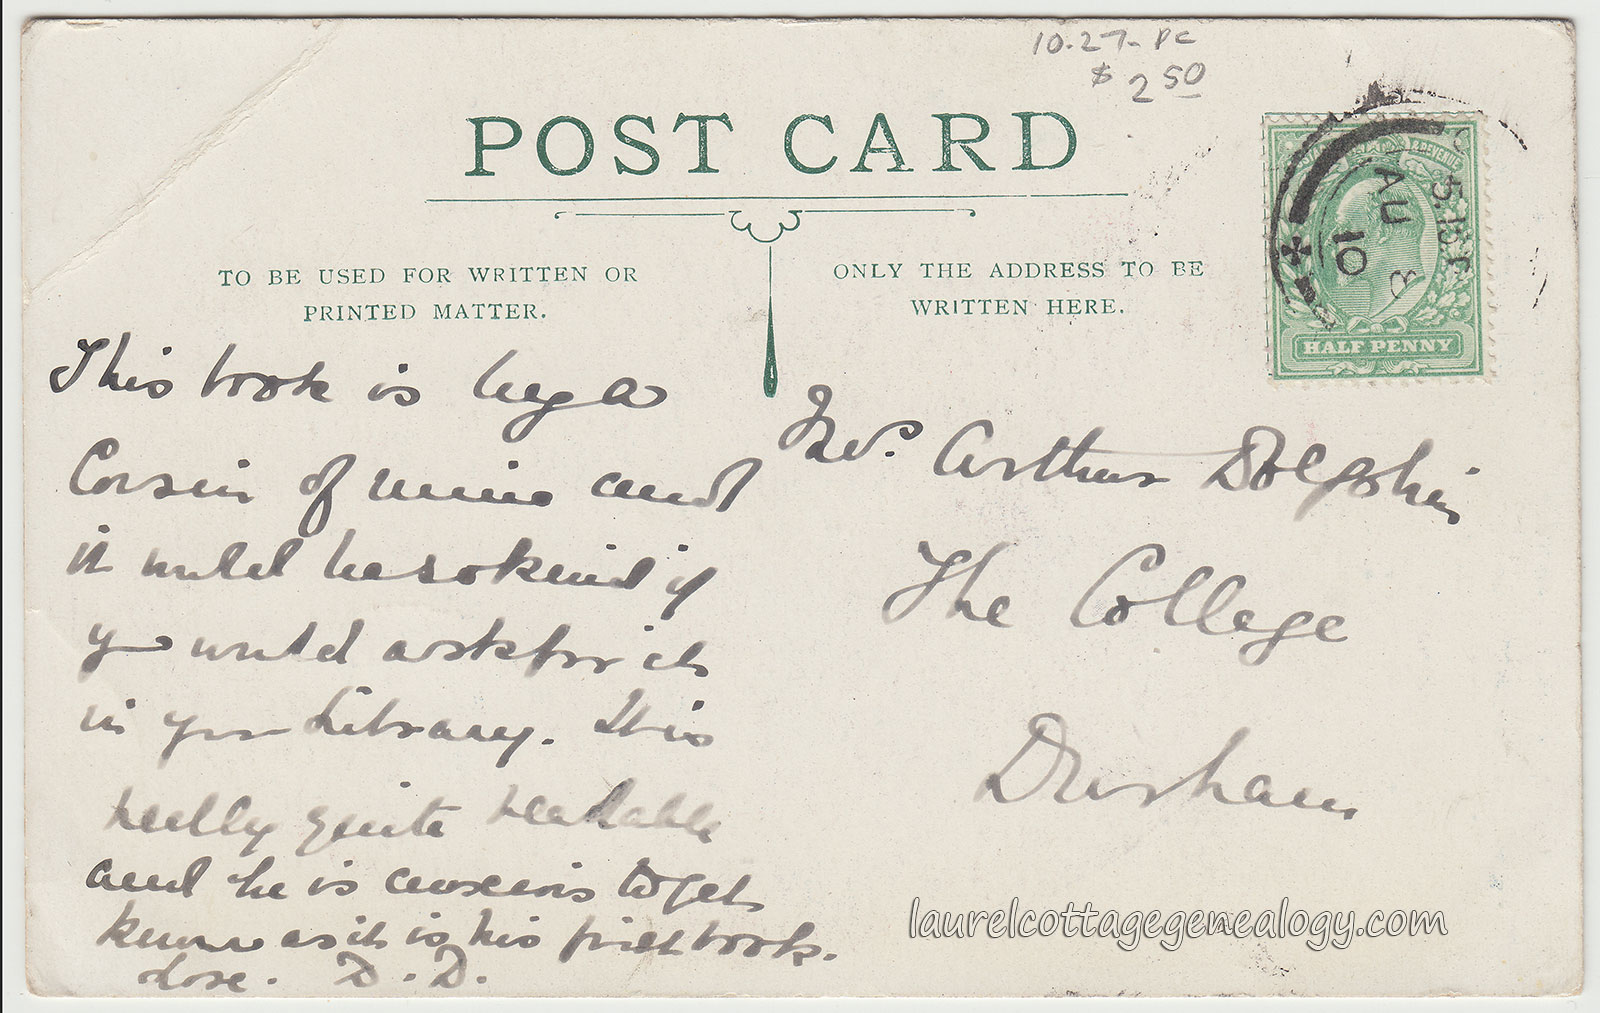 10-27- PC
$ 2 50
POST CARD
TO BE USED FOR WRITTEN OR
PRINTED MATTER.
ONLY THE ADDRESS TO BE
WRITTEN HERE.
& REVENUE
5.15 P
AU 8
10
HALF PENNY
This book is by a
Cousin of mine and
it would be so kind if
you would ask for it
in your Library. It is
really quite readable
and he is anxious to get
known as it is his first book.
Love. D. D.
Mrs. Arthur Dolphin
The College
Durham
laurelcottagegenealogy.com